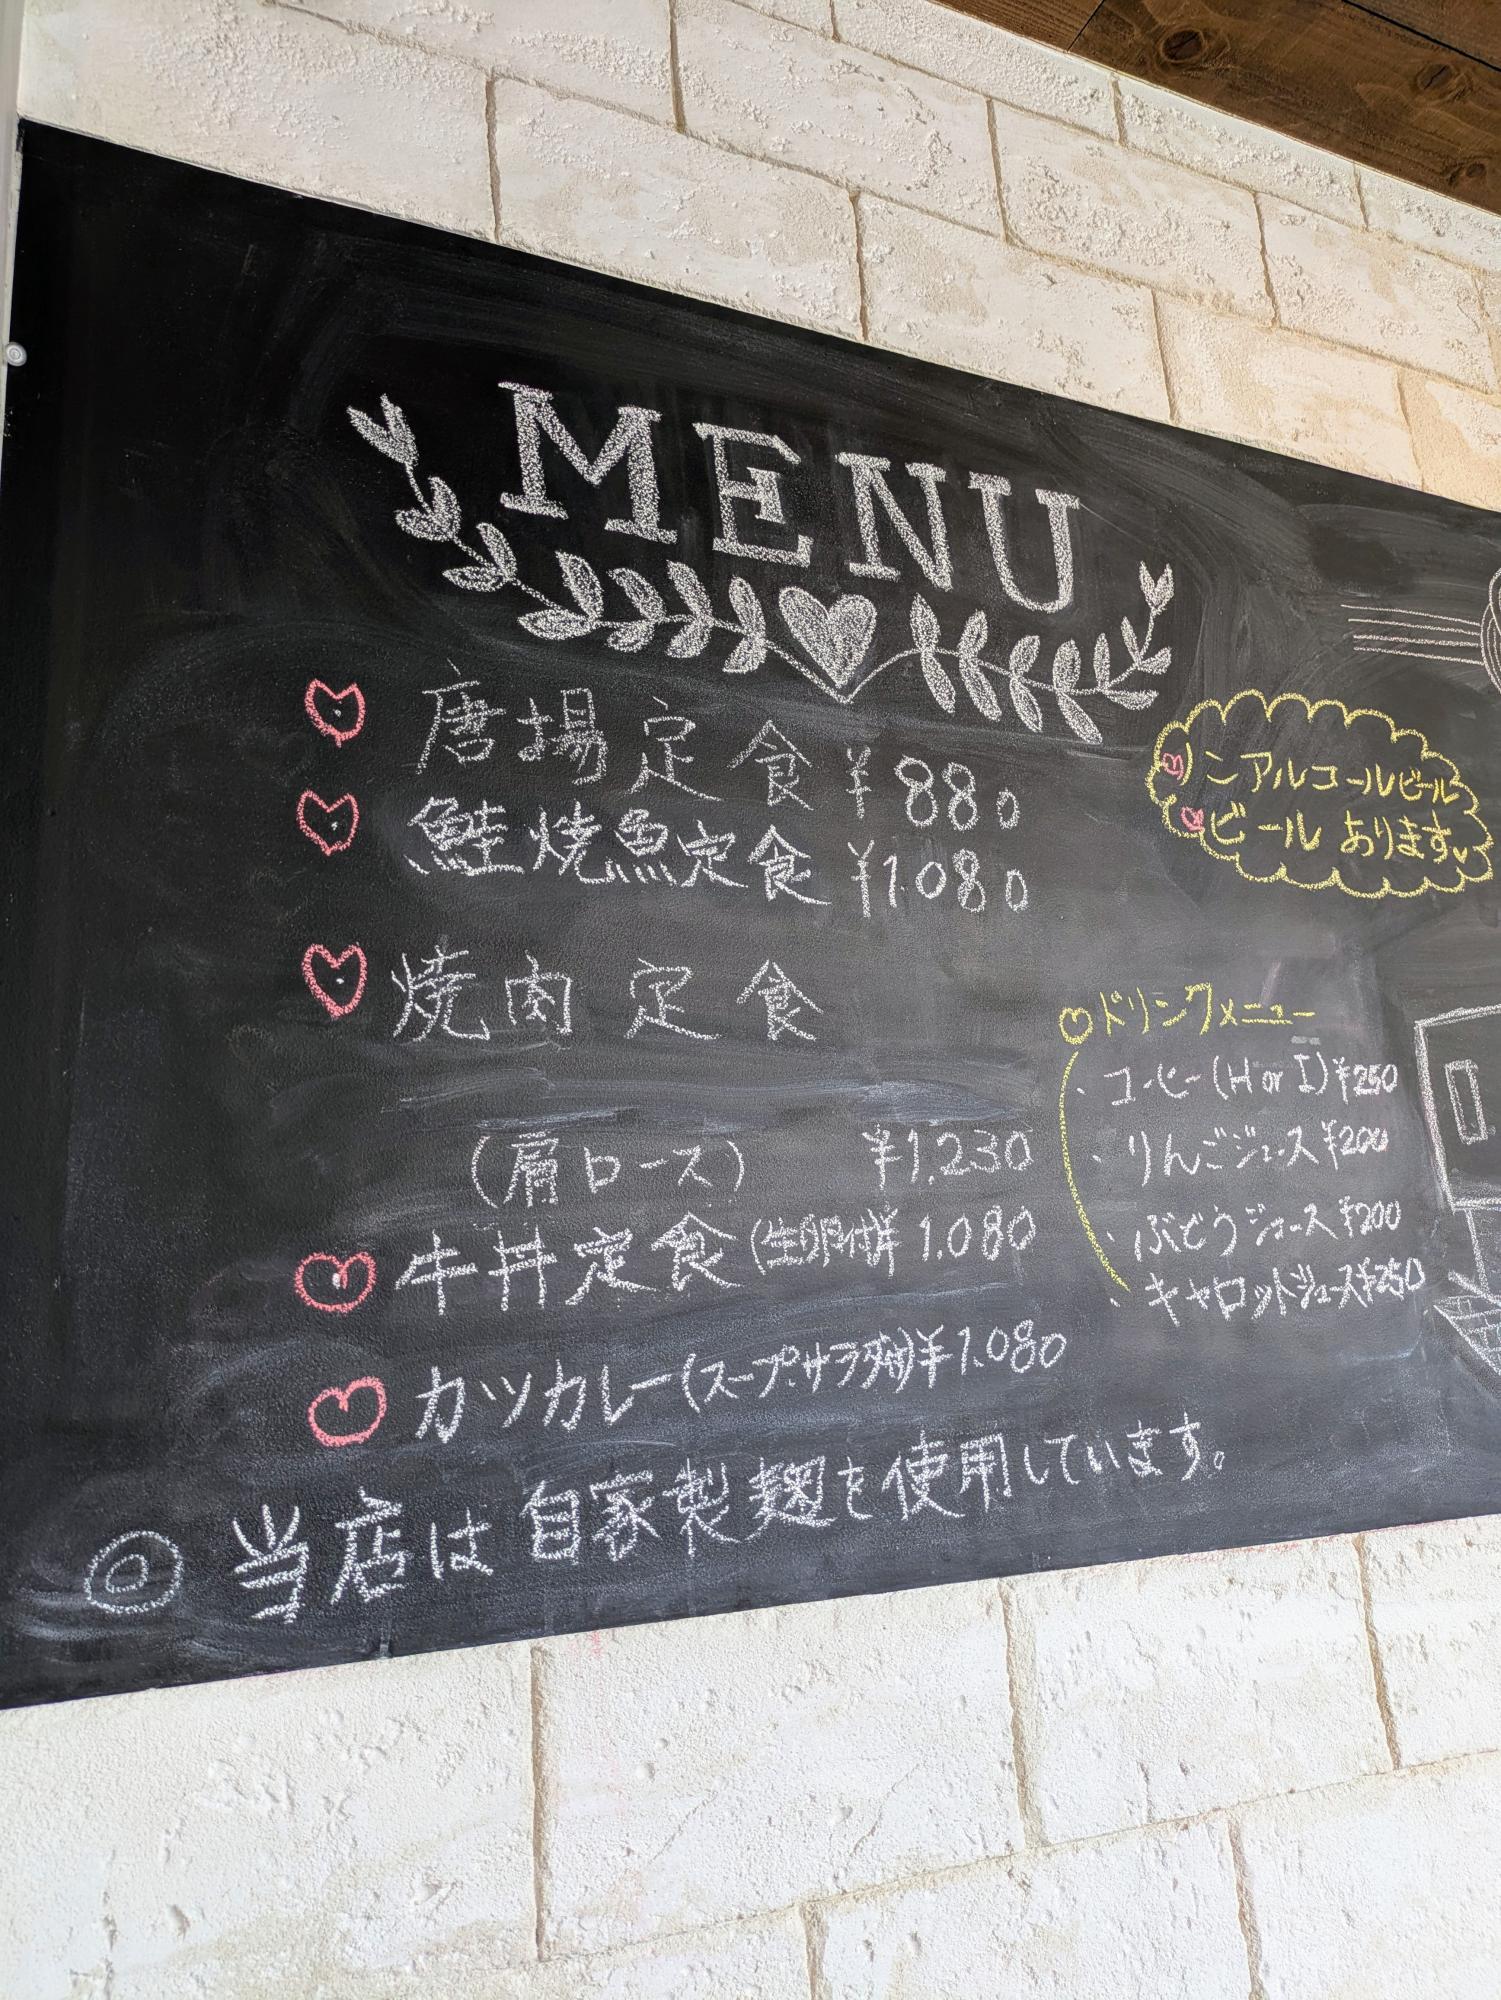 MENU
唐揚定食 ¥880
鮭焼魚定食 ¥1080
焼肉定食
(肩ロース) ¥1,230
牛丼定食(生卵付)¥1.080
カツカレー(スープ.サラダ付)¥1.080
◎当店は自家製麹を使用しています。
ノンアルコールビール
ビールあります
ドリンクメニュー
・コーヒー(H or I)¥250
・りんごジュース¥200
・ぶどうジュース¥200
・キャロットジュース¥250